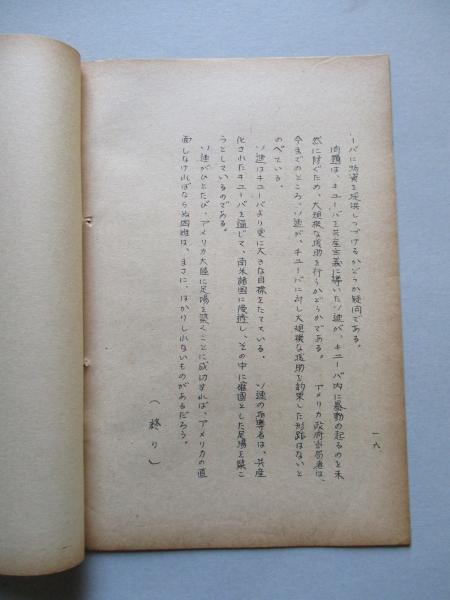 ーバに物資を提供しつづけるかどうか疑問である。
問題は、キューバを共産主義に導いたソ連が、キューバ内に暴動の起るのを未
然に防ぐため、大規模な援助を行うかどうかである。　アメリカ政府当局者は、
今までのところ、ソ連が、キューバに対し大規模な援助を約束した形跡はないと
のべている。
ソ連はキューバより更に大きな目標をたてている。　ソ連の指導者は、共産
化されたキューバを通じて、南米諸国に浸透し、その中に確固とした足場を築こ
うとしているのである。
ソ連がひとたび、アメリカ大陸に足場を築くことに成功すれば、アメリカの直
面しなければならぬ困難は、まさに、はかりしれないものがあるだろう。
（終り）
一六